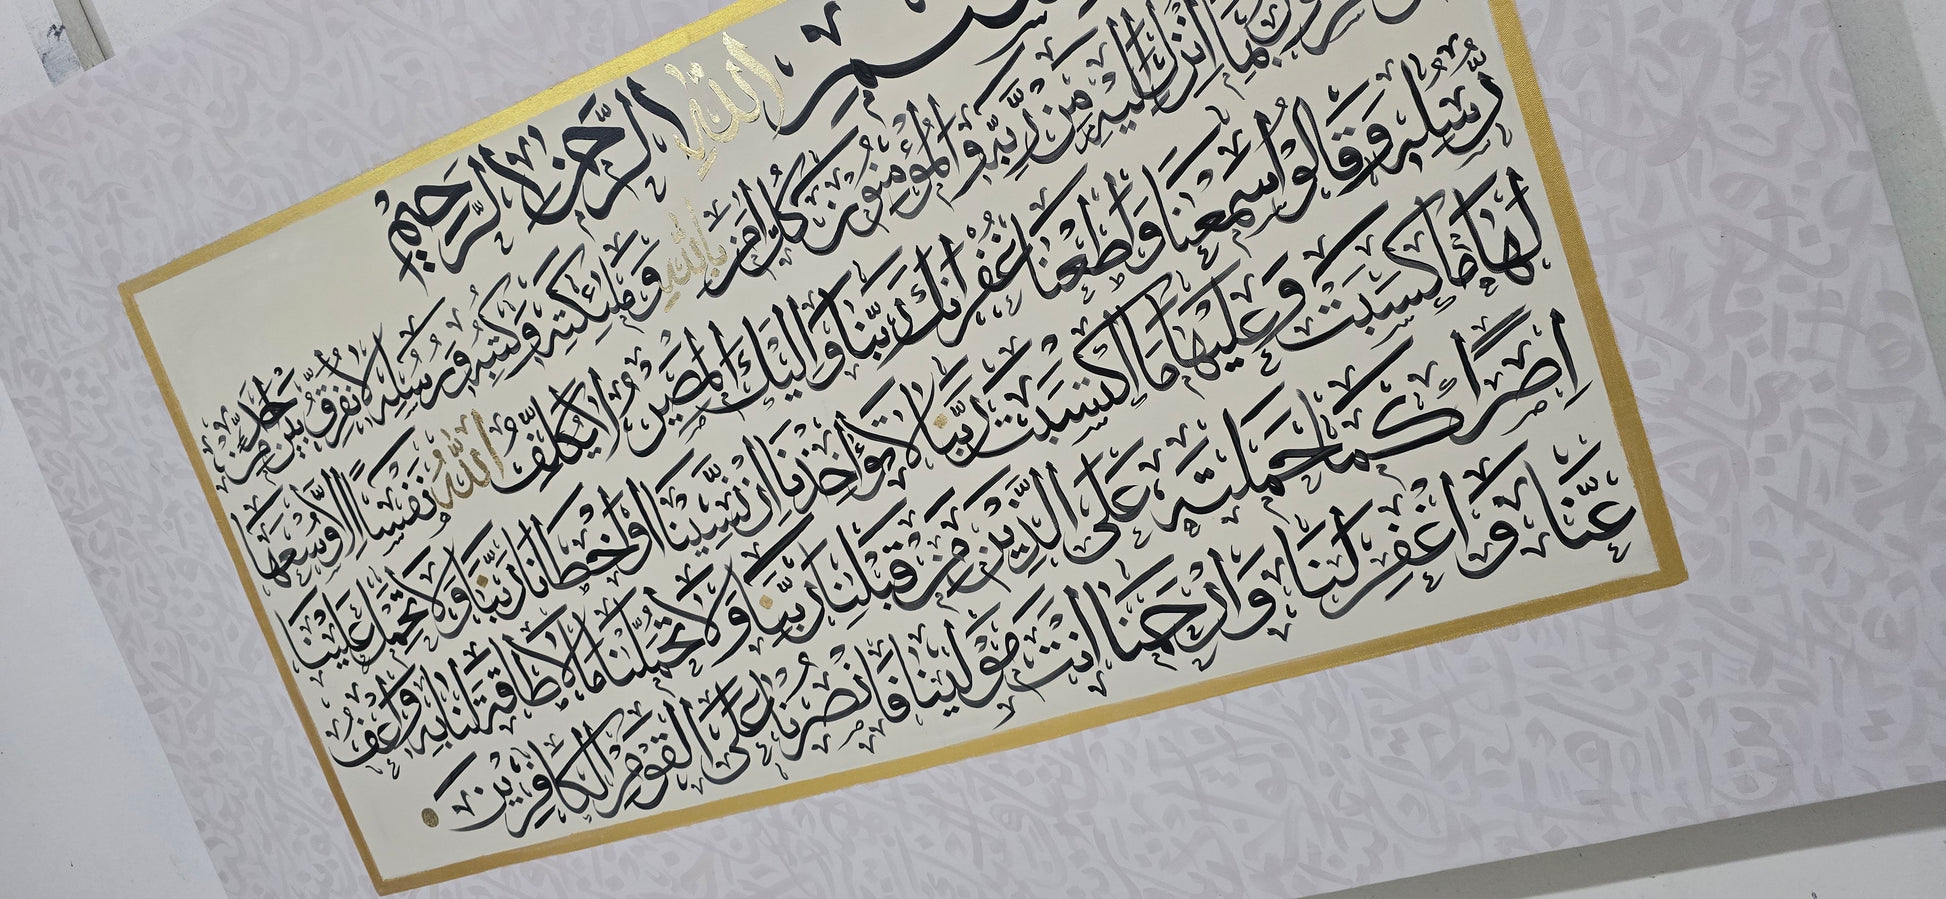 بِسْمِ اللهِ الرَّحْمٰنِ الرَّحِيْمِ
الرَّسُوْلُ بِمَا اُنْزِلَ اِلَيْهِ مِنْ رَّبِّهٖ وَالْمُؤْمِنُوْنَ كُلٌّ اٰمَنَ بِاللهِ وَمَلٰٓئِكَتِهٖ وَكُتُبِهٖ وَرُسُلِهٖ لَا نُفَرِّقُ بَيْنَ اَحَدٍ مِّنْ
رُّسُلِهٖ وَقَالُوْا سَمِعْنَا وَاَطَعْنَا غُفْرَانَكَ رَبَّنَا وَاِلَيْكَ الْمَصِيْرُ لَا يُكَلِّفُ اللّٰهُ نَفْسًا اِلَّا وُسْعَهَا
لَهَا مَا كَسَبَتْ وَعَلَيْهَا مَا اكْتَسَبَتْ رَبَّنَا لَا تُؤَاخِذْنَا اِنْ نَّسِيْنَا اَوْ اَخْطَاْنَا رَبَّنَا وَلَا تَحْمِلْ عَلَيْنَا
اِصْرًا كَمَا حَمَلْتَهٗ عَلَى الَّذِيْنَ مِنْ قَبْلِنَا رَبَّنَا وَلَا تُحَمِّلْنَا مَا لَا طَاقَةَ لَنَا بِهٖ وَاعْفُ
عَنَّا وَاغْفِرْ لَنَا وَارْحَمْنَا اَنْتَ مَوْلٰينَا فَانْصُرْنَا عَلَى الْقَوْمِ الْكَافِرِيْنَ